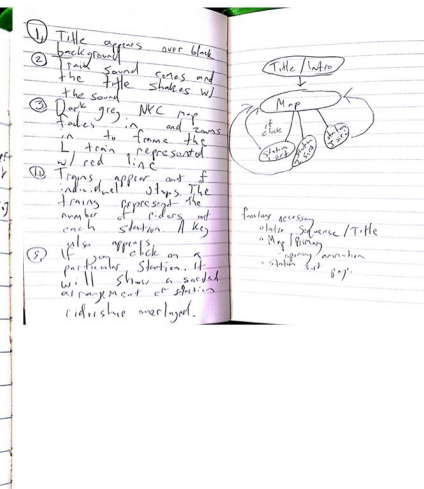 ① Title appears over black
background
② Train sound comes and
the title shakes w/
the sound
③ Dark grey NYC map
fades in and zooms
in to frame the
L train represented
w/ red line
Trains appear out of
individual stops. The
trains represent the
number of riders at
each station. A key
also appears.
⑤ If you click on a
particular station. it
will show a sorted
arrangement of station
ridership overlayed.
Title / Intro
Map
if
click
functions necessary
Intro Sequence / Title
Map / Primary
opening animation
station sort
page.